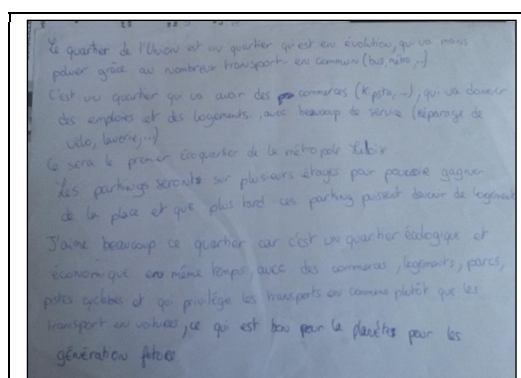 Le quartier de l'Union est un quartier qui est en évolution, qui va moins
poluer grâce au nombreux transport en commun (bus, métro, ...)
C'est un quartier qui va avoir des commerces (kipsta, ...), qui va donner
des emploies et des logements, avec beaucoup de service (réparage de
vélo, laverie, ...)
Ce sera le premier écoquartier de la métropole
Les parkings seronts sur plusieurs étages pour pouvoir gagner
de la place et que plus tard ces parking puissent devenir de logements
J'aime beaucoup ce quartier car c'est un quartier écologique et
économique en même temps, avec des commerces, logements, parcs,
pistes cyclables et qui privilège les transports en commun plutôt que les
transport en voitures, ce qui est bon pour la planètes pour les
génération futures